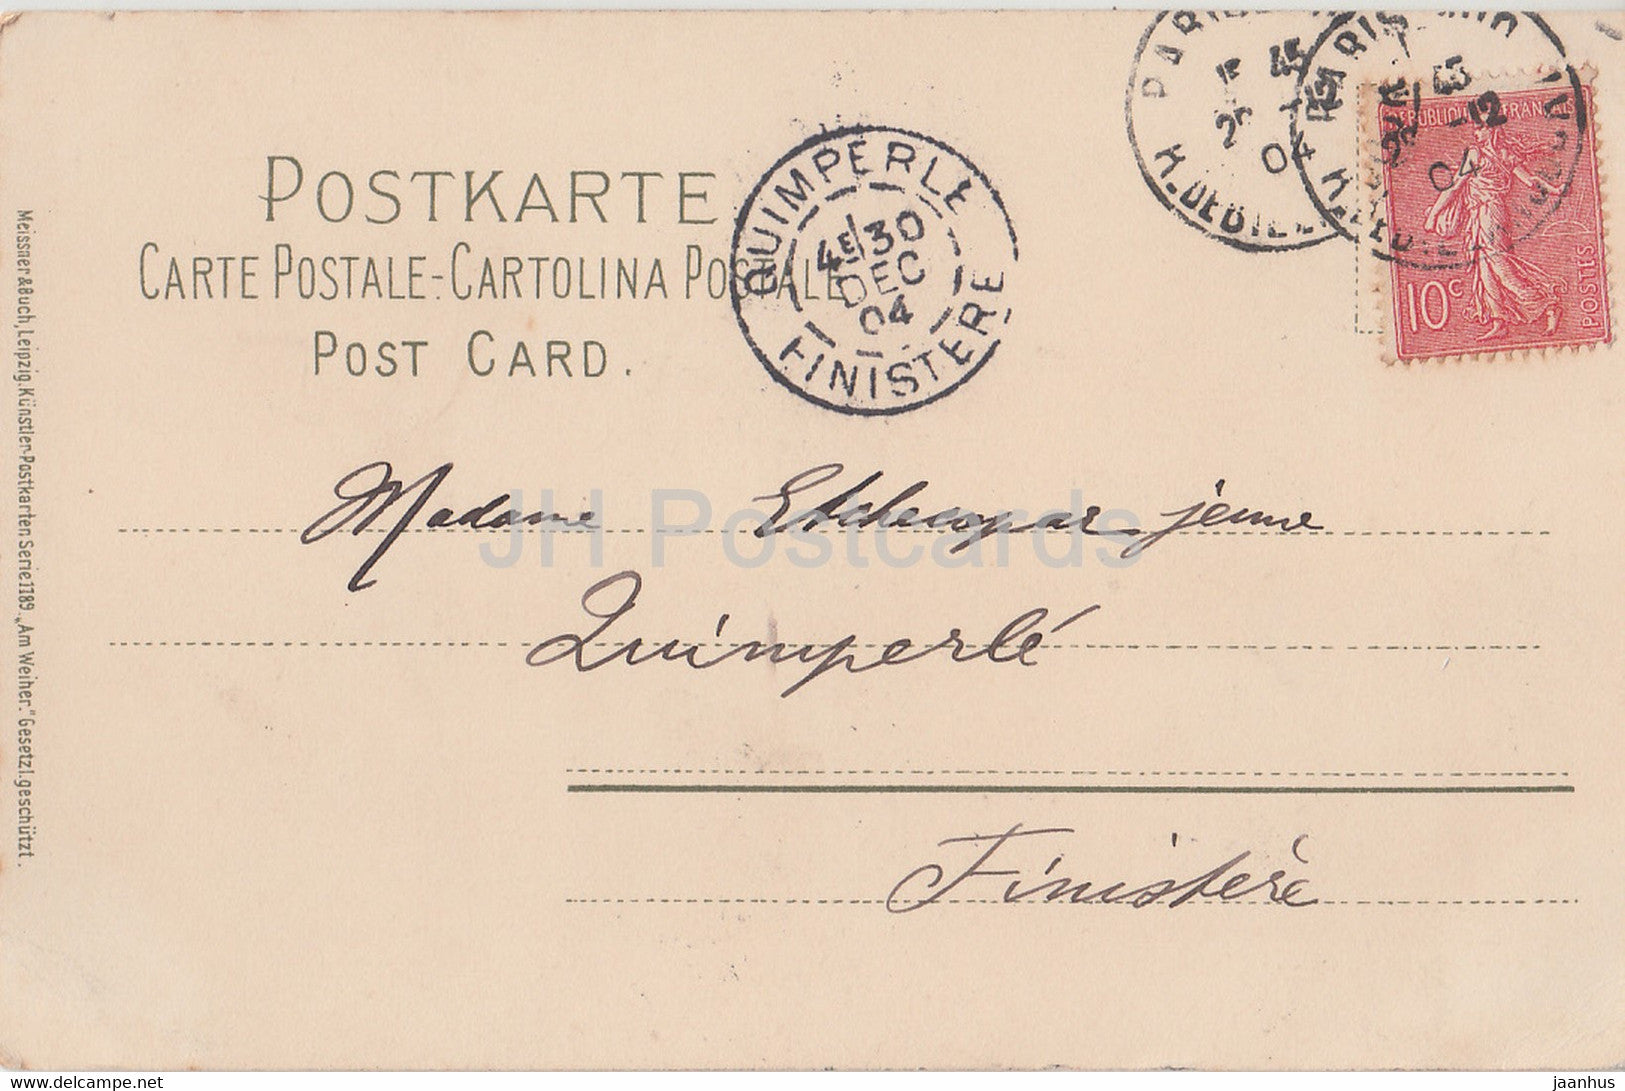 POSTKARTE
CARTE POSTALE-CARTOLINA POSTALE
POST CARD.
QUIMPERLE
4E 30
DEC
04
FINISTERE
PARIS
45
04
PARIS
45
12
04
REPUBLIQUE FRANCAISE
10c
POSTES
Madame Etchecopar jeune
Quimperlé
Finistère
Meissner & Buch, Leipzig. Künstler-Postkarten Serie 1189. „Am Weiher." Gesetzl. geschützt.
JH Postcards
www.delcampe.net
jaanhus